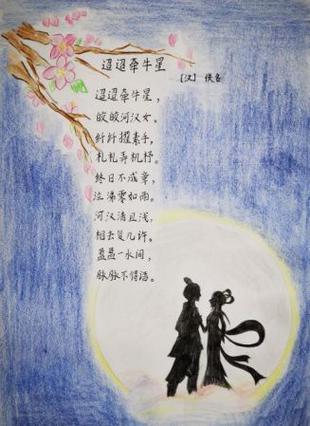 迢迢牵牛星
[汉] 佚名
迢迢牵牛星，
皎皎河汉女。
纤纤擢素手，
札札弄机杼。
终日不成章，
泣涕零如雨。
河汉清且浅，
相去复几许。
盈盈一水间，
脉脉不得语。